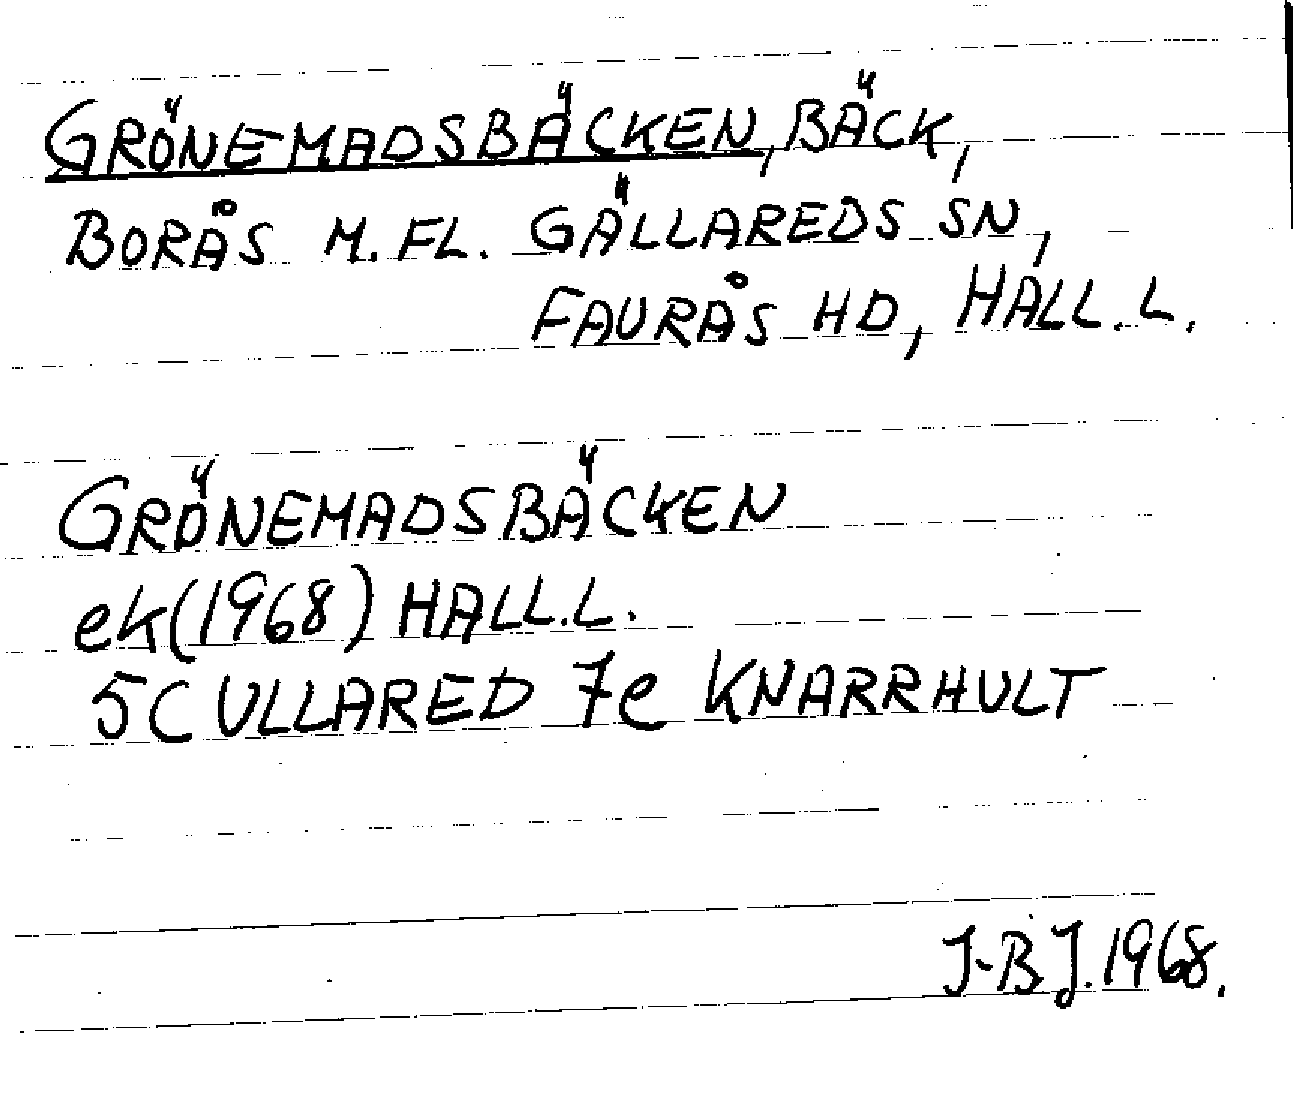 GRÖNEMADSBÄCKEN, BÄCK,
BORÅS M.FL. GÄLLAREDS SN,
FAURÅS HD, HALL.L.
GRÖNEMADSBÄCKEN
ek(1968) HALL.L.
5C ULLARED 7e KNARRHULT
J-B.J. 1968.